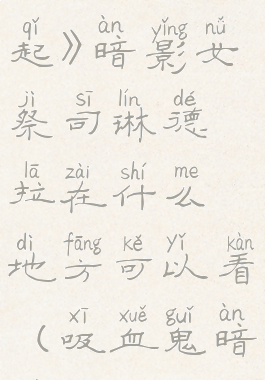 qǐ àn yǐng nǚ
起》暗影女
jì sī lín dé
祭司琳德
lā zài shí me
拉在什么
dì fāng kě yǐ kàn
地方可以看
xī xuě guǐ àn
（吸血鬼暗